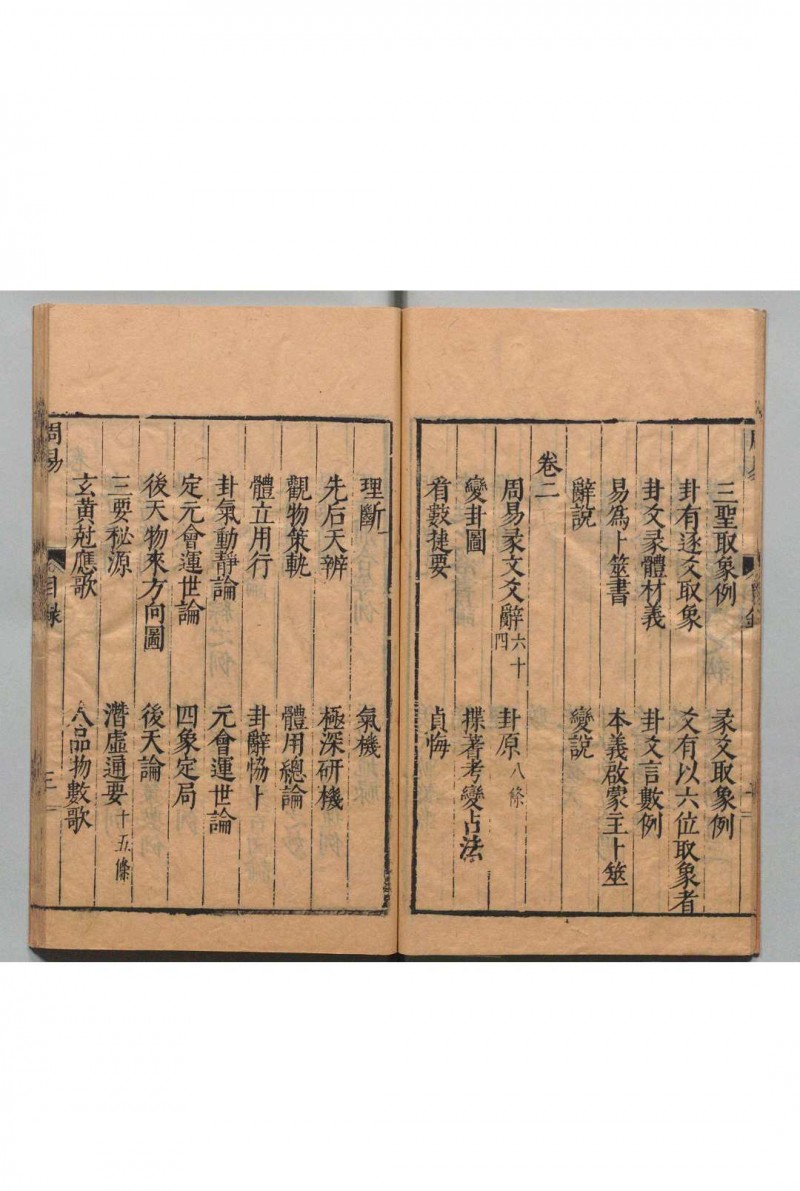 三聖取象例 彖爻取象例
卦有逐爻取象 爻有以六位取象者
卦爻彖體材義 卦爻言數例
易為卜筮書 本義啟蒙主卜筮
辭說 變說
卷二
周易彖文爻辭六十四 卦原八條
變卦圖 揲著考變占法
看數捷要 貞悔
理斷 氣機
先后天辨 極深研機
觀物策軌 體用總論
體立用行 卦辭恊卜
卦氣動靜論 元會運世論
定元會運世論 四象定局
後天物來方向圖 後天論
三要秘源 潛虛通要十五條
玄黃尅應歌 品物數歌
周易 目錄